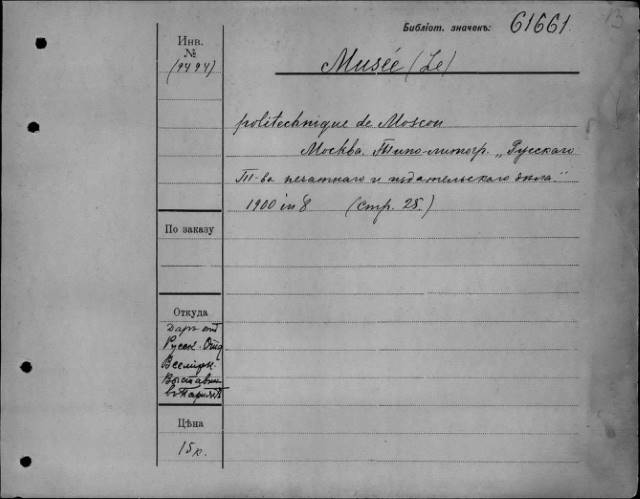 Библіот. значекъ: 61661
13
Инв.
№
(9494)
Musée (Le)
politechnique de Moscou
Москва. Типо-литогр. „Русскаго
Т-ва печатнаго и издательскаго дѣла."
1900 in 8 (стр. 25.)
По заказу
Откуда
Даръ отъ
Русск. Отд
Всемірн.
Выставки
въ Парижѣ
Цѣна
15 к.